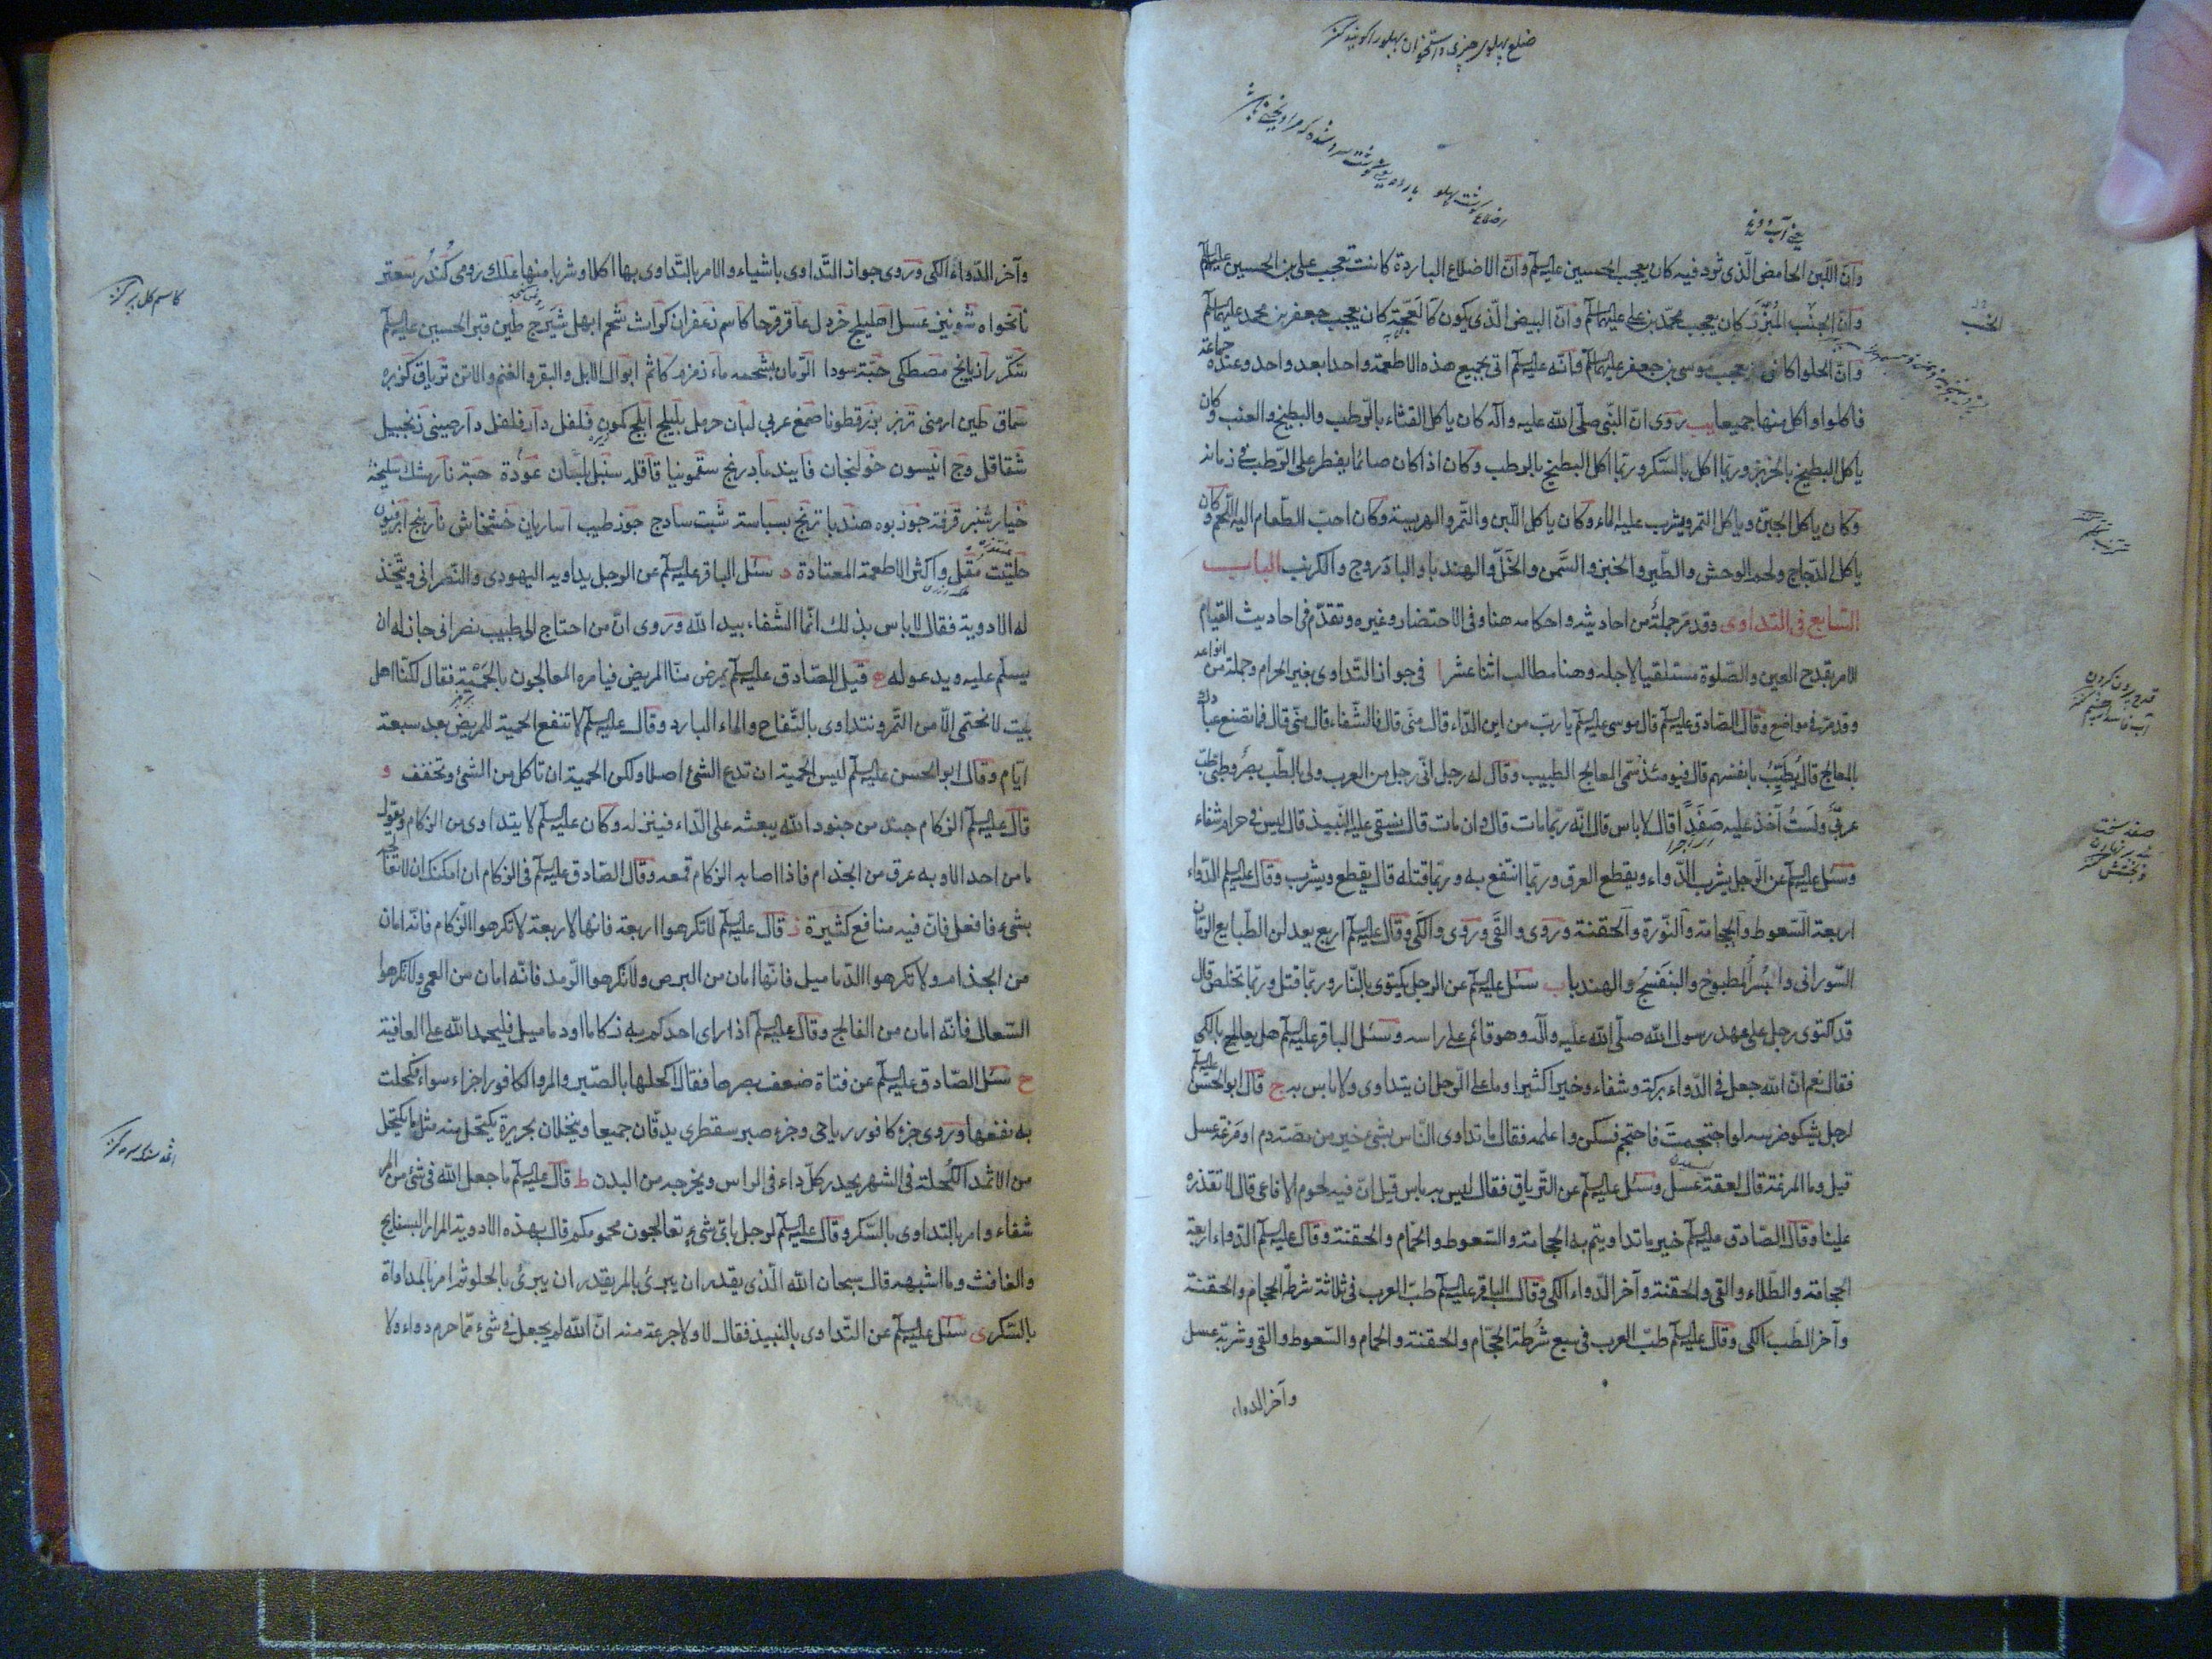 وانّ اللّبن الحامض الّذی ثرد فیه کان یعجب الحسین علیه السلم وانّ الاضلاع الباردة کانت تعجب علی بن الحسین علیه السلم
وانّ الجنب المبزّر کان یعجب محمّد بن علی علیهما السلم وانّ البیض الّذی یکون کالعجّة کان یعجب جعفر بن محمد علیهما السلم
وانّ الحلوا کان یعجب موسی بن جعفر علیهما السلم فانّه علیه السلم اتی بجمیع هذه الاطعمة واحدا بعد واحد وعنده جماعة
فاکلوا واکل منها جمیعا یب روی انّ النّبی صلّی الله علیه وآله کان یاکل القثاء بالرّطب والبطیخ والعنب وکان
یاکل البطیخ بالخبز وربّما اکل بالسّکر وربّما اکل البطیخ بالرطب وکان اذا کان صائما یفطر علی الرّطب فی زمانه
وکان یاکل الجبن ویاکل التمر ویشرب علیه الماء وکان یاکل اللّبن والتّمر والهریسة وکان احبّ الطّعام الیه اللّحم وکان
یاکل الدّجاج ولحم الوحش والطّیر والخبز والسّمن والخلّ والهندبا والبادروج والکرنب الباب
السّابع فی التداوی وقد مرّ جملة من احادیثه واحکامه هنا وفی الاحتضار وغیره وتقدّم فی احادیث القیام
الامر بقدح العین والصّلوة مستلقیا لاجله وهنا مطالب اثنا عشر ا فی جواز التّداوی بغیر الحرام وجملة من انواعه
وقد مرّ فی مواضع وقال الصّادق علیه السلم قال موسی علیه السلم یا ربّ من این الدّاء قال منّی قال فالشّفاء قال منّی قال فما تصنع عبادک
بالمعالج قال یطیّب بانفسهم قال فیومئذ سمّی المعالج الطبیب وقال له رجل انّی رجل من العرب ولی بالطّب بصر وطبّی طبّ
عربیّ ولست آخذ علیه صفدا قال لا باس قال انّه ربّما مات قال وان مات قال نسقی علیه النّبیذ قال لیس فی حرام شفاء
وسئل علیه السلم عن الرّجل یشرب الدّواء ویقطع العرق وربّما انتفع به وربّما قتله قال یقطع ویشرب وقال علیه السلم الدّواء
اربعة السّعوط والحجامة والنّورة والحقنة وروی والقی وروی والکی وقال علیه السلم اربع یعدلن الطّبایع الرّمان
السّورانی والبسر المطبوخ والبنفسج والهندبا ب سئل علیه السلم عن الرجل یکتوی بالنّار وربّما قتل وربّما تخلص قال
قد اکتوی رجل علی عهد رسول الله صلّی الله علیه وآله وهو قائم علی راسه وسئل الباقر علیه السلم هل یعالج بالکی
فقال نعم انّ الله جعل فی الدّواء برکة وشفاء وخیرا کثیرا وما علی الرّجل ان یتداوی ولا باس به ج قال ابو الحسن علیه السلم
لرجل یشکو ضرسه لو احتجمت فاحتجم فسکن واعلمه فقال ما تداوی النّاس بشیء خیر من مصّة دم او مزعة عسل
قیل وما المزعة قال لعقة عسل وسئل علیه السلم عن التّریاق فقال لیس به باس قیل انّ فیه لحوم الافاعی قال لا تقذره
علینا وقال الصّادق علیه السلم خیر ما تداویتم به الحجامة والسّعوط والحمّام والحقنة وقال علیه السلم الدّواء اربعة
الحجامة والطّلاء والقی والحقنة وآخر الدّواء الکی وقال الباقر علیه السلم طبّ العرب فی ثلاثة شرطة الحجام والحقنة
وآخر الطبّ الکی وقال علیه السلم طبّ العرب فی سبع شرطة الحجّام والحقنة والحمام والسّعوط والقی وشربة عسل
وآخر الدواء
وآخر الدّواء الکی وروی جواز التّداوی باشیاء والامر بالتّداوی بها اکلا وشربا منها علک رومی کندر سعتر
نانخواه شونیز عسل اهلیلج خردل عاقرقرحا کاسم زعفران کراث شحم ابهل شیرج طین قبر الحسین علیه السلم
سکّر رازیانج مصطکی حبّة سودا الرّمان بشحمه ماء زمزم کاثم ابوال الابل والبقر والغنم والاتن تریاق کزبره
سماق طین ارمنی بزر قطونا صمغ عربی لبان حرمل بلیلج املج کمون فلفل دارفلفل دارصینی زنجبیل
شقاقل وج انیسون خولنجان فانید مادرنج سقمونیا قاقله سنبل بلسان عودة حبة نارمشک سلیخة
خیارشنبر قرفة جوز بوه هندبا ترنج بسباسة شبت سادج جوز طیب اساریان خشخاش نارنج افرفیون
حلتیت مقل واکثر الاطعمة المعتادة د سئل الباقر علیه السلم عن الرجل یداویه الیهودی والنّصرانی ویتّخذ
له الادویة فقال لا باس بذلک انّما الشّفاء بید الله وروی انّ من احتاج الی طبیب نصرانی جاز له ان
یسلّم علیه ویدعو له ه قیل للصّادق علیه السلم یمرض منّا المریض فیامره المعالجون بالحمیة فقال لکنّا اهل
بیت لا نحتمی الّا من التّمر ونتداوی بالتّفاح والماء البارد وقال علیه السلم لا تنفع الحمیة للمریض بعد سبعة
ایّام وقال ابو الحسن علیه السلم لیس الحمیة ان تدع الشیء اصلا ولکن الحمیة ان تاکل من الشیء وتخفف و
قال علیه السلم الزکام جند من جنود الله یبعثه علی الدّاء فینزله وکان علیه السلم لا یتداوی من الزکام ویقول
ما من احد الا وبه عرق من الجذام فاذا اصابه الزکام قمعه وقال الصّادق علیه السلم فی الزکام ان امکنک ان لا تعالجه
بشیء فافعل فانّ فیه منافع کثیرة ز قال علیه السلم لا تکرهوا اربعة فانها لاربعة لا تکرهوا الزّکام فانّه امان
من الجذام ولا تکرهوا الدّمامیل فانّها امان من البرص ولا تکرهوا الرّمد فانّه امان من العمی ولا تکرهوا
السّعال فانّه امان من الفالج وقال علیه السلم اذا رای احدکم به زکاما او دمامیل فلیحمد الله علی العافیة
ح سئل الصّادق علیه السلم عن فتاة ضعف بصرها فقال اکحلها بالصّبر والمر والکافور اجزاء سواء فکحلت
به نفعها وروی جزء کافور ریاحی وجزء صبر سقطری یدقّان جمیعا وینخلان بحریرة یکتحل منه مثل ما یکتحل
من الاثمد الکحلة فی الشهر یحدر کلّ داء فی الراس ویخرجه من البدن ط قال علیه السلم ما جعل الله فی شیء من المر
شفاء وامر بالتداوی بالسّکر وقال علیه السلم لرجل بایّ شیء تعالجون محمومکم قال بهذه الادویة المرار البسفایج
والغافث وما اشبهه قال سبحان الله الّذی یقدر ان یبرئ بالمر یقدر ان یبرئ بالحلو ثم امر بالمداواة
بالسّکر ی سئل علیه السلم عن التّداوی بالنبیذ فقال لا ولا جرعة منه انّ الله لم یجعل فی شیء ممّا حرم دواء ولا